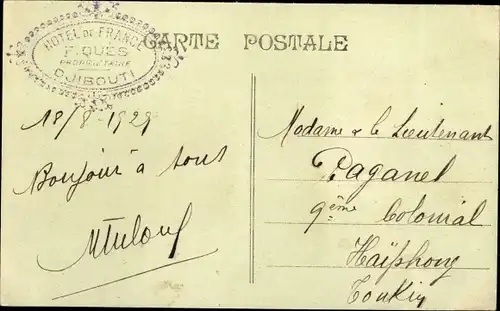 HOTEL DE FRANCE
F. QUES
PROPRIETAIRE
DJIBOUTI
CARTE POSTALE
18/8-1929
Bonjour à tous
Madame & le Lieutenant
Paganel
9ème Colonial
Haïphong
Tonkin